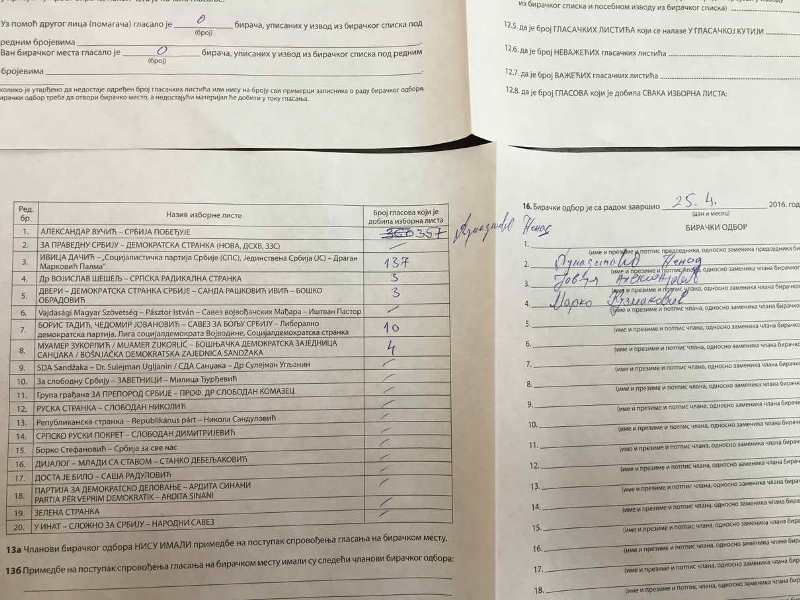 Уз помоћ другог лица (помагача) гласало је 0 бирача, уписаних у извод из бирачког списка под
(број)
редним бројевима
Ван бирачког места гласало је 0 бирача, уписаних у извод из бирачког списка под редним
(број)
бројевима
колико је утврђено да недостаје одређен број гласачких листића или нису на броју сви примерци записника о раду бирачког одбора
бирачки одбор треба да отвори бирачко место, а недостајући материјал ће добити у току гласања.
из бирачког списка и посебном изводу из бирачког списка)
12.5. да је број ГЛАСАЧКИХ ЛИСТИЋА који се налазе У ГЛАСАЧКОЈ КУТИЈИ
12.6. да је број НЕВАЖЕЋИХ гласачких листића
12.7. да је број ВАЖЕЋИХ гласачких листића
12.8. да је број ГЛАСОВА који је добила СВАКА ИЗБОРНА ЛИСТА:
Ред. бр. Назив изборне листе Број гласова који је добила изборна листа
1. АЛЕКСАНДАР ВУЧИЋ – СРБИЈА ПОБЕЂУЈЕ 357
2. ЗА ПРАВЕДНУ СРБИЈУ – ДЕМОКРАТСКА СТРАНКА (НОВА, ДСХВ, ЗЗС)
3. ИВИЦА ДАЧИЋ – „Социјалистичка партија Србије (СПС), Јединствена Србија (ЈС) – Драган
Марковић Палма" 137
4. Др ВОЈИСЛАВ ШЕШЕЉ – СРПСКА РАДИКАЛНА СТРАНКА 3
5. ДВЕРИ – ДЕМОКРАТСКА СТРАНКА СРБИЈЕ – САНДА РАШКОВИЋ ИВИЋ – БОШКО
ОБРАДОВИЋ 3
6. Vajdasági Magyar Szövetség – Pásztor István – Савез војвођанских Мађара – Иштван Пастор
7. БОРИС ТАДИЋ, ЧЕДОМИР ЈОВАНОВИЋ – САВЕЗ ЗА БОЉУ СРБИЈУ – Либерално
демократска партија, Лига социјалдемократа Војводине, Социјалдемократска странка 10
8. МУАМЕР ЗУКОРЛИЋ / MUAMER ZUKORLIĆ – БОШЊАЧКА ДЕМОКРАТСКА ЗАЈЕДНИЦА
САНЏАКА / BOŠNJAČKA DEMOKRATSKA ZAJEDNICA SANDŽAKA 4
9. SDA Sandžaka – Dr. Sulejman Ugljanin / СДА Санџака – Др Сулејман Угљанин
10. За слободну Србију – ЗАВЕТНИЦИ – Милица Ђурђевић
11. Група грађана ЗА ПРЕПОРОД СРБИЈЕ – ПРОФ. ДР СЛОБОДАН КОМАЗЕЦ
12. РУСКА СТРАНКА – СЛОБОДАН НИКОЛИЋ
13. Републиканска странка – Republikánus párt – Никола Сандуловић
14. СРПСКО РУСКИ ПОКРЕТ – СЛОБОДАН ДИМИТРИЈЕВИЋ
15. Борко Стефановић – Србија за све нас
16. ДИЈАЛОГ – МЛАДИ СА СТАВОМ – СТАНКО ДЕБЕЉАКОВИЋ
17. ДОСТА ЈЕ БИЛО – САША РАДУЛОВИЋ
18. ПАРТИЈА ЗА ДЕМОКРАТСКО ДЕЛОВАЊЕ – АРДИТА СИНАНИ
PARTIA PËR VEPRIM DEMOKRATIK – ARDITA SINANI
19. ЗЕЛЕНА СТРАНКА
20. У ИНАТ – СЛОЖНО ЗА СРБИЈУ – НАРОДНИ САВЕЗ
13а Чланови бирачког одбора НИСУ ИМАЛИ примедбе на поступак спровођења гласања на бирачком месту.
13б Примедбе на поступак спровођења гласања на бирачком месту имали су следећи чланови бирачког одбора:
16. Бирачки одбор је са радом завршио 25.4. 2016. го
(дан и месец)
БИРАЧКИ ОДБОР
1.
(име и презиме и потпис председника, односно заменика председника би
2. Ненад
3.
4. Марко
5.
(име и презиме и потпис члана, односно заменика члана бирачко
6.
(име и презиме и потпис члана, односно заменика члана бирачк
7.
(име и презиме и потпис члана, односно заменика члана бирачк
8.
(име и презиме и потпис члана, односно заменика члана бирачк
9.
(име и презиме и потпис члана, односно заменика члана бирачк
10.
(име и презиме и потпис члана, односно заменика члана бирач
11.
(име и презиме и потпис члана, односно заменика члана бирач
12.
(име и презиме и потпис члана, односно заменика члана бирач
13.
(име и презиме и потпис члана, односно заменика члана бира
14.
(име и презиме и потпис члана, односно заменика члана бира
15.
(име и презиме и потпис члана, односно заменика члана бира
16.
(име и презиме и потпис члана, односно заменика члана бир
17.
(име и презиме и потпис члана, односно заменика члана би
18.